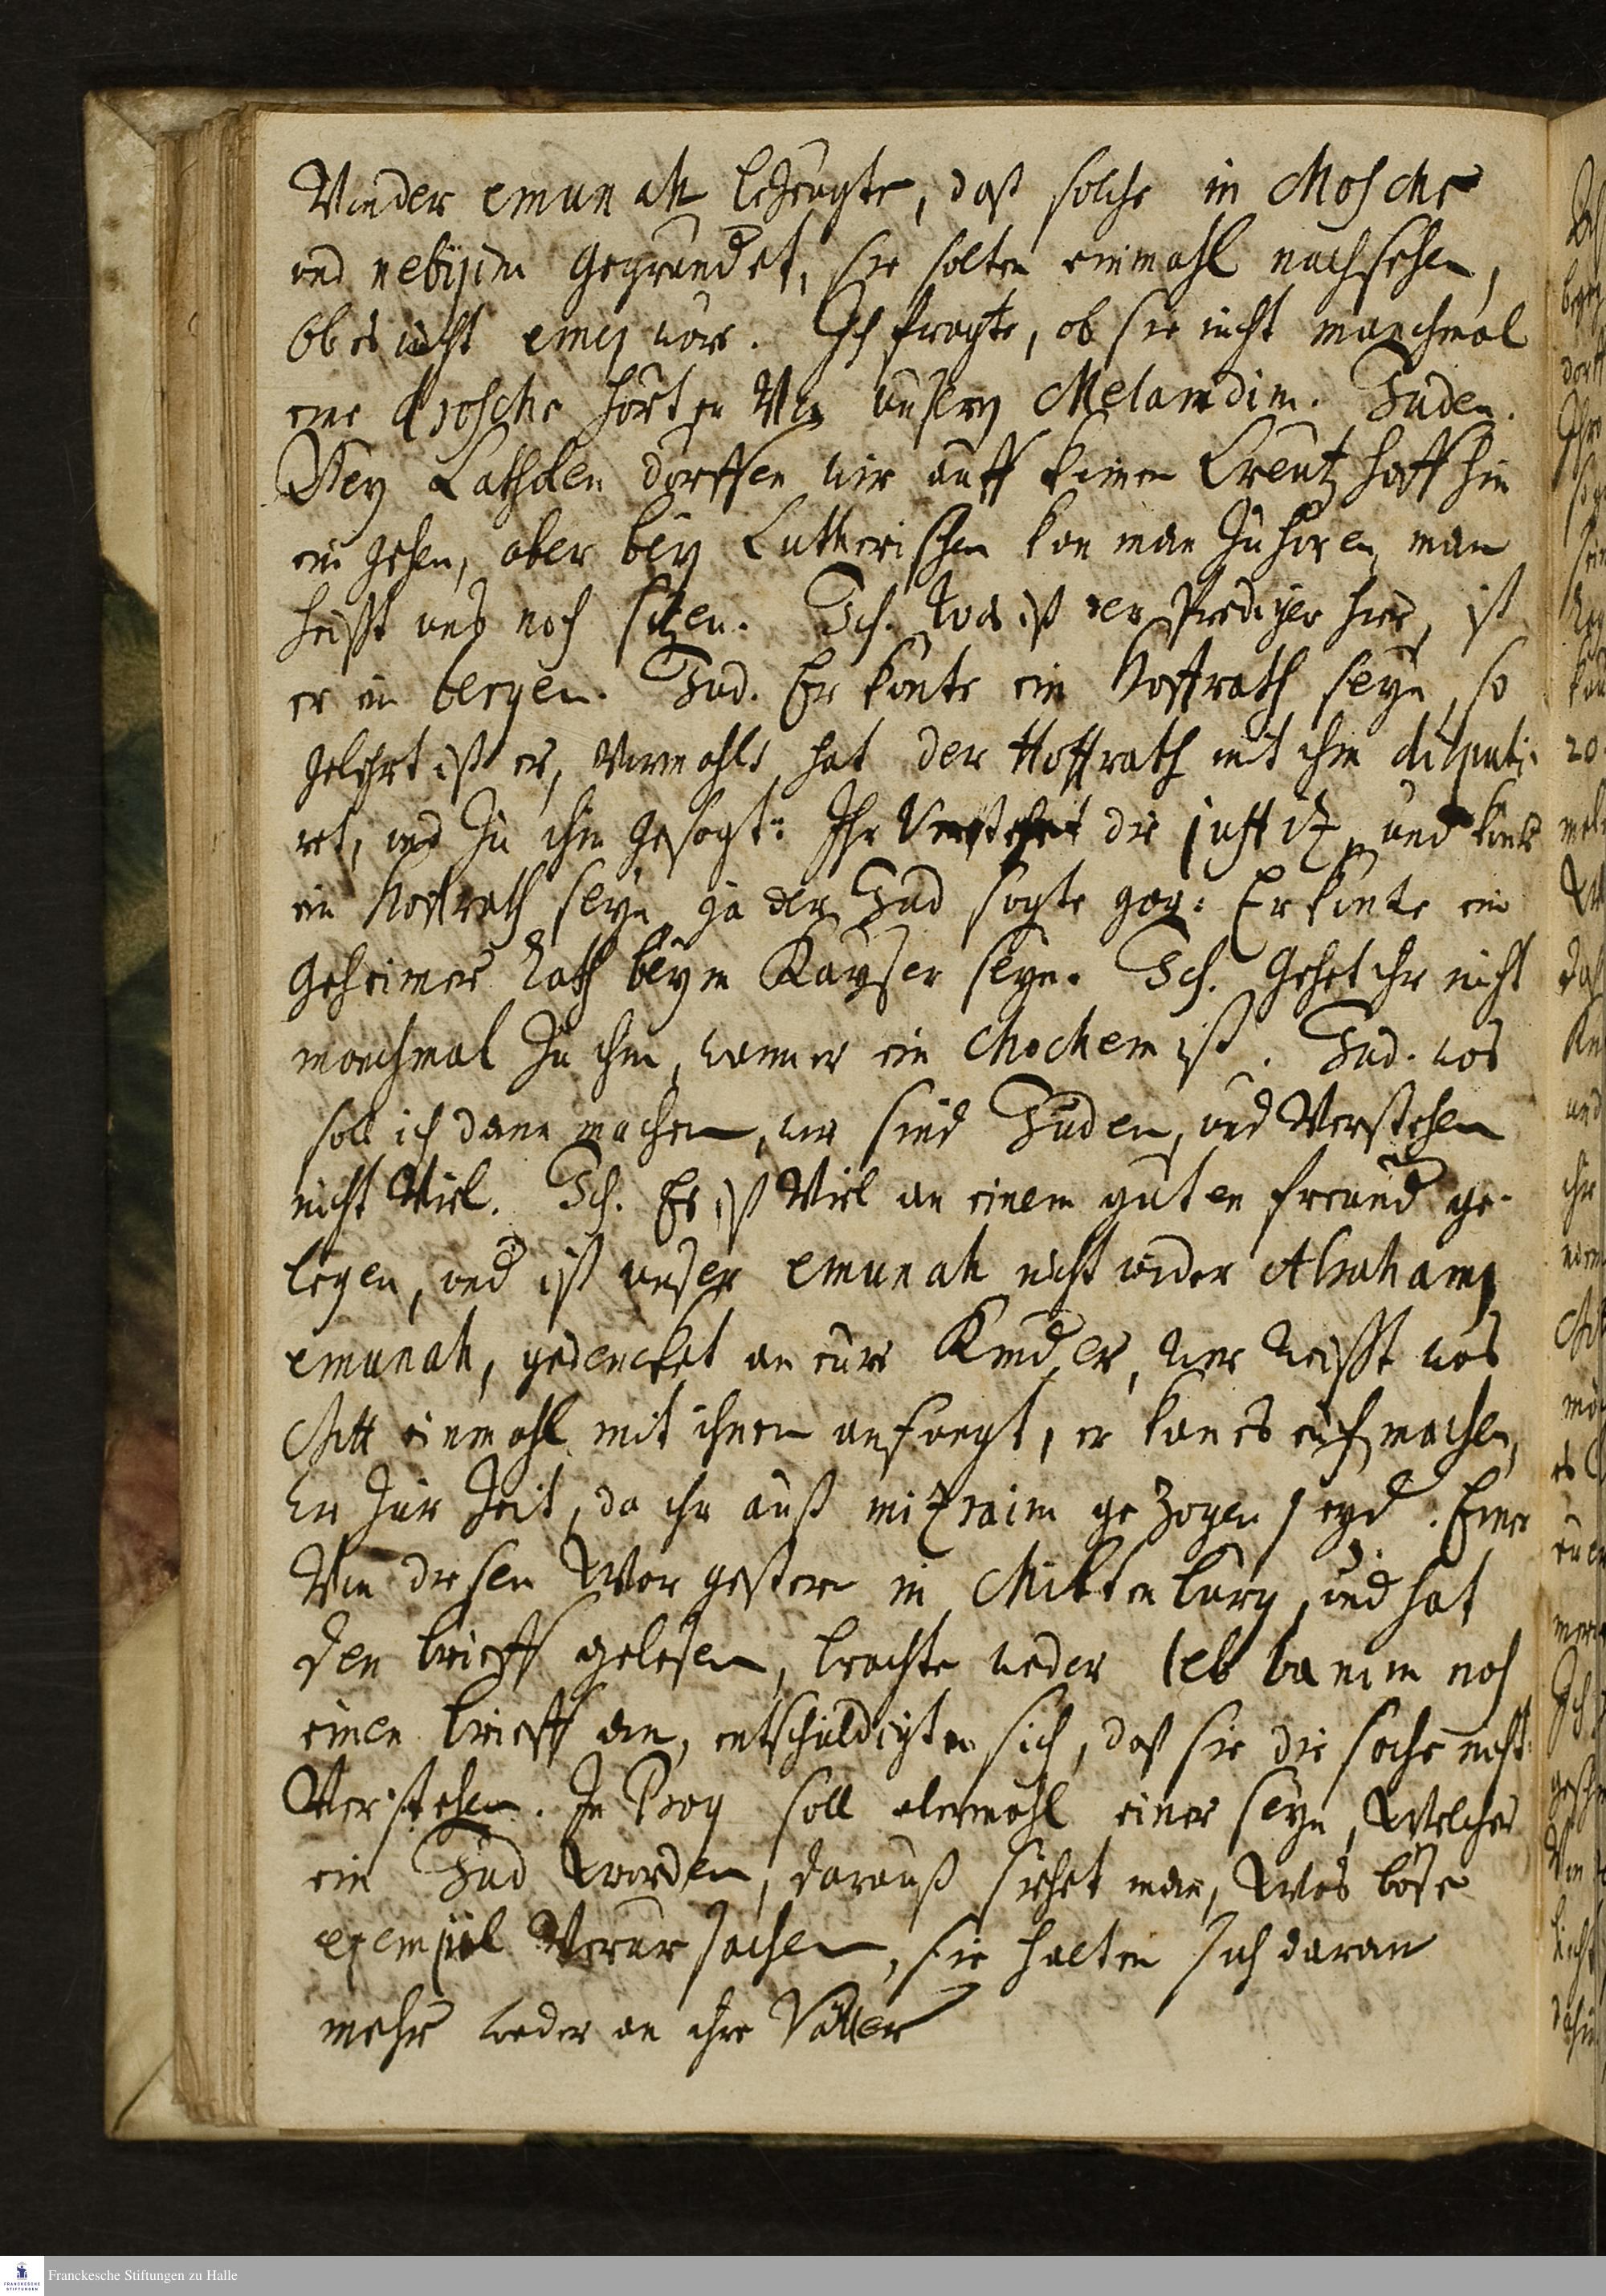 Von der emunah bezeugte, daß solche in Mosche
und nebijim gegründet, sie solten einmahl nachsehen,
Ob es nicht emes wäre. Ich fragte, ob sie nicht manchmal
eine drosche hörten Von unsern Melamdim. Juden.
Bey Catholen dörffen wir auff keinen Creutz hoff hin
ein gehen, aber bey Lutherischen kan man zuhören, man
heisst uns noch sitzen. Ich. Was ist der Prediger hier, ist
er ein Jud. Er könte ein Hoffrath seyn, so
gelehrt ist er, Vormahls hat der Hoffrath mit ihm disputi-
ret, und zu ihm gesagt: Ihr Verstehet die justitz, und könt
ein Hoffrath seyn, ja der Jud sagte gar: Er könte ein
Geheimer Rath beym Kayser seyn. Ich. Gehet ihr nicht
manchmal zu ihm, wann er ein Chochem ist. Jud. was
soll ich dann machen, wir sind Juden, und Verstehen
nicht Viel. Ich. Es ist Viel an einem guten freund ge-
legen, und ist unser emunah nicht wider Abrahams
emunah, gedencket an eure Kinder, wer weisst was
Gott einmahl mit ihnen anfangt, er kan es auch machen,
wie zur Zeit, da ihr auß mizraim gezogen seyd. Einer
Von diesen War gestern in Miltenburg, und hat
den brieff gelesen, brachte weder leb banim noch
einen brieff an, entschuldigten sich, daß sie die sache nicht
Verstehen. In Prag soll abermahl einer seyn, Welcher
ein Jud worden, darauß siehet man, Was böse
exempel Verursachen, sie halten sich daran
mehr weder an ihre Vätter
Franckesche Stiftungen zu Halle